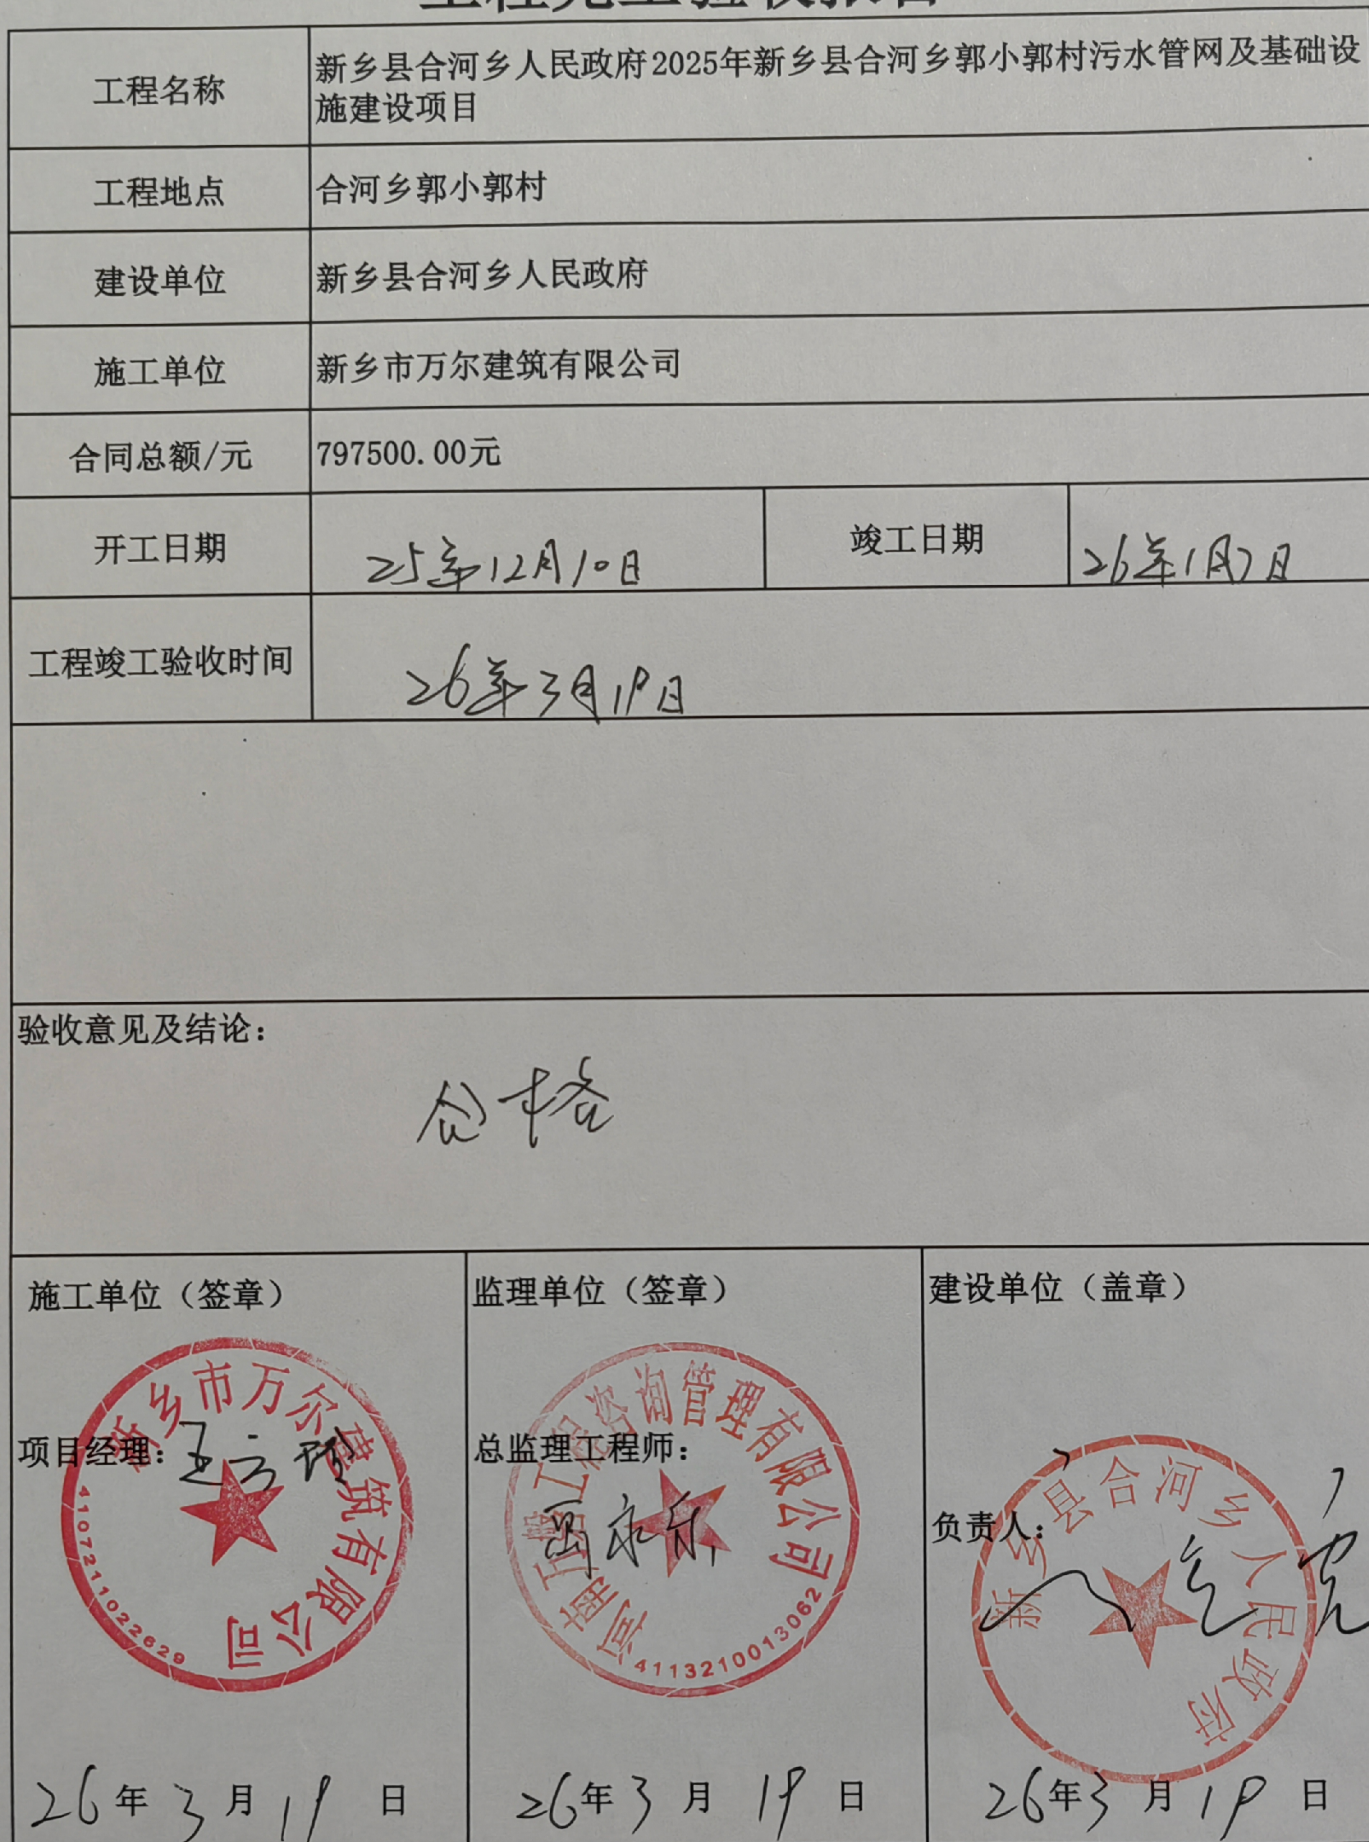 工程名称
新乡县合河乡人民政府2025年新乡县合河乡郭小郭村污水管网及基础设
施建设项目
工程地点
合河乡郭小郭村
建设单位
新乡县合河乡人民政府
施工单位
新乡市万尔建筑有限公司
合同总额/元
797500.00元
开工日期
25年12月10日
竣工日期
26年1月7日
工程竣工验收时间
26年3月19日
验收意见及结论:
合格
施工单位（签章）
新乡市万尔建筑有限公司
项目经理:
4107211022629
26年3月19日
监理单位（签章）
工程咨询管理有限公司
总监理工程师:
4113210013062
26年3月19日
建设单位（盖章）
新乡县合河乡人民政府
负责人:
26年3月19日